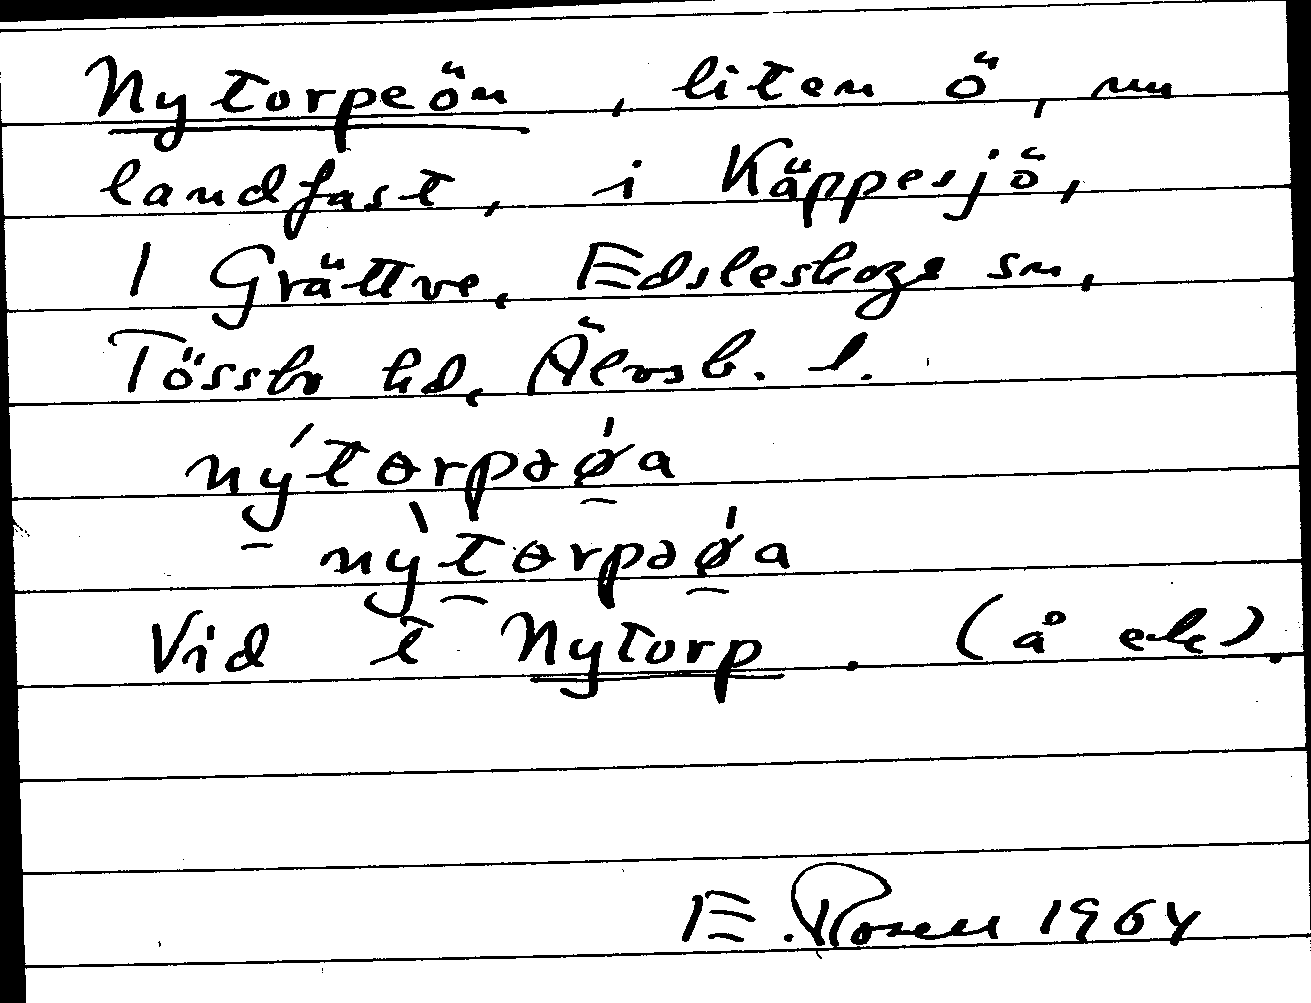 Nytorpeön, liten ö, nu
landfast, i Käppesjö,
1 Grättve, Edsleskogs sn,
Tössbo hd, Älvsb. l.
nýtɵrpəǿa
nỳtɵrpəǿa
Vid t Nytorp. (å ek).
E. Rosen 1964